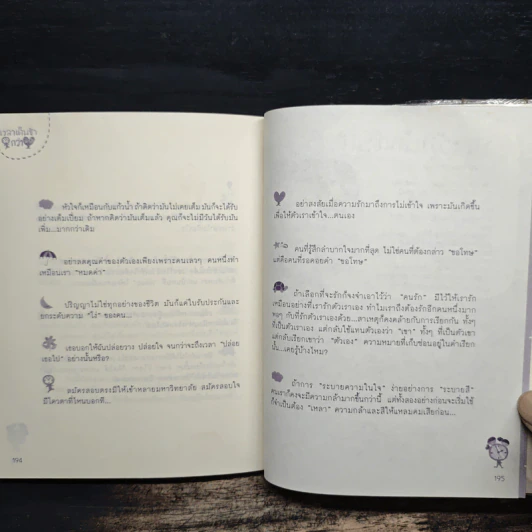 หัวใจก็เหมือนกับแก้วน้ำ ถ้าคิดว่ามันไม่เคยเต็ม มันก็จะได้รับ
อย่างเต็มเปี่ยม ถ้าหากคิดว่ามันเต็มแล้ว คุณก็จะไม่มีวันได้รับมัน
เพิ่ม...มากกว่าเดิม
อย่าลดคุณค่าของตัวเองเพียงเพราะคนเลวๆ คนหนึ่งทำ
เหมือนเรา "หมดค่า"
ปริญญาไม่ใช่ทุกอย่างของชีวิต มันก็แค่ใบรับประกันและ
ยกระดับความ "โง่" ของคน...
เธอบอกให้ฉันปล่อยวาง ปล่อยใจ จนกว่าจะถึงเวลา "ปล่อย
เธอไป" อย่างนั้นหรือ?
สมัครสอบตรงมีให้เข้าหลายมหาวิทยาลัย สมัครสอบใจ
มีโควตาที่ไหนบอกที...
194
อย่าสงสัยเมื่อความรักมาถึงการไม่เข้าใจ เพราะมันเกิดขึ้น
เพื่อให้ตัวเราเข้าใจ...ตนเอง
คนที่รู้สึกลำบากใจมากที่สุด ไม่ใช่คนที่ต้องกล่าว "ขอโทษ"
แต่คือคนที่รอคอยคำ "ขอโทษ"
ถ้าเลือกที่จะรักก็จงจำเอาไว้ว่า "คนรัก" มีไว้ให้เรารัก
เหมือนอย่างที่เรารักตัวเราเอง ทำไมเราถึงต้องรักอีกคนหนึ่งมาก
จอๆ กับที่รักตัวเราเองด้วย...สาเหตุก็คงคล้ายกับการเรียกกัน ทั้งๆ
ที่เป็นตัวเราเอง แต่กลับใช้แทนตัวเองว่า "เขา" ทั้งๆ ที่เป็นตัวเขา
แต่กลับเรียกเขาว่า "ตัวเอง" ความหมายที่เก็บซ่อนอยู่ในคำเรียก
นั้น...เคยรู้บ้างไหม?
ถ้าการ "ระบายความในใจ" ง่ายอย่างการ "ระบายสี"
คนเราก็คงจะมีความกล้ามากขึ้นกว่านี้ แต่ทั้งสองอย่างก่อนจะเริ่มใช้
ก็จำเป็นต้อง "เหลา" ความกล้าและสีให้แหลมคมเสียก่อน...
195